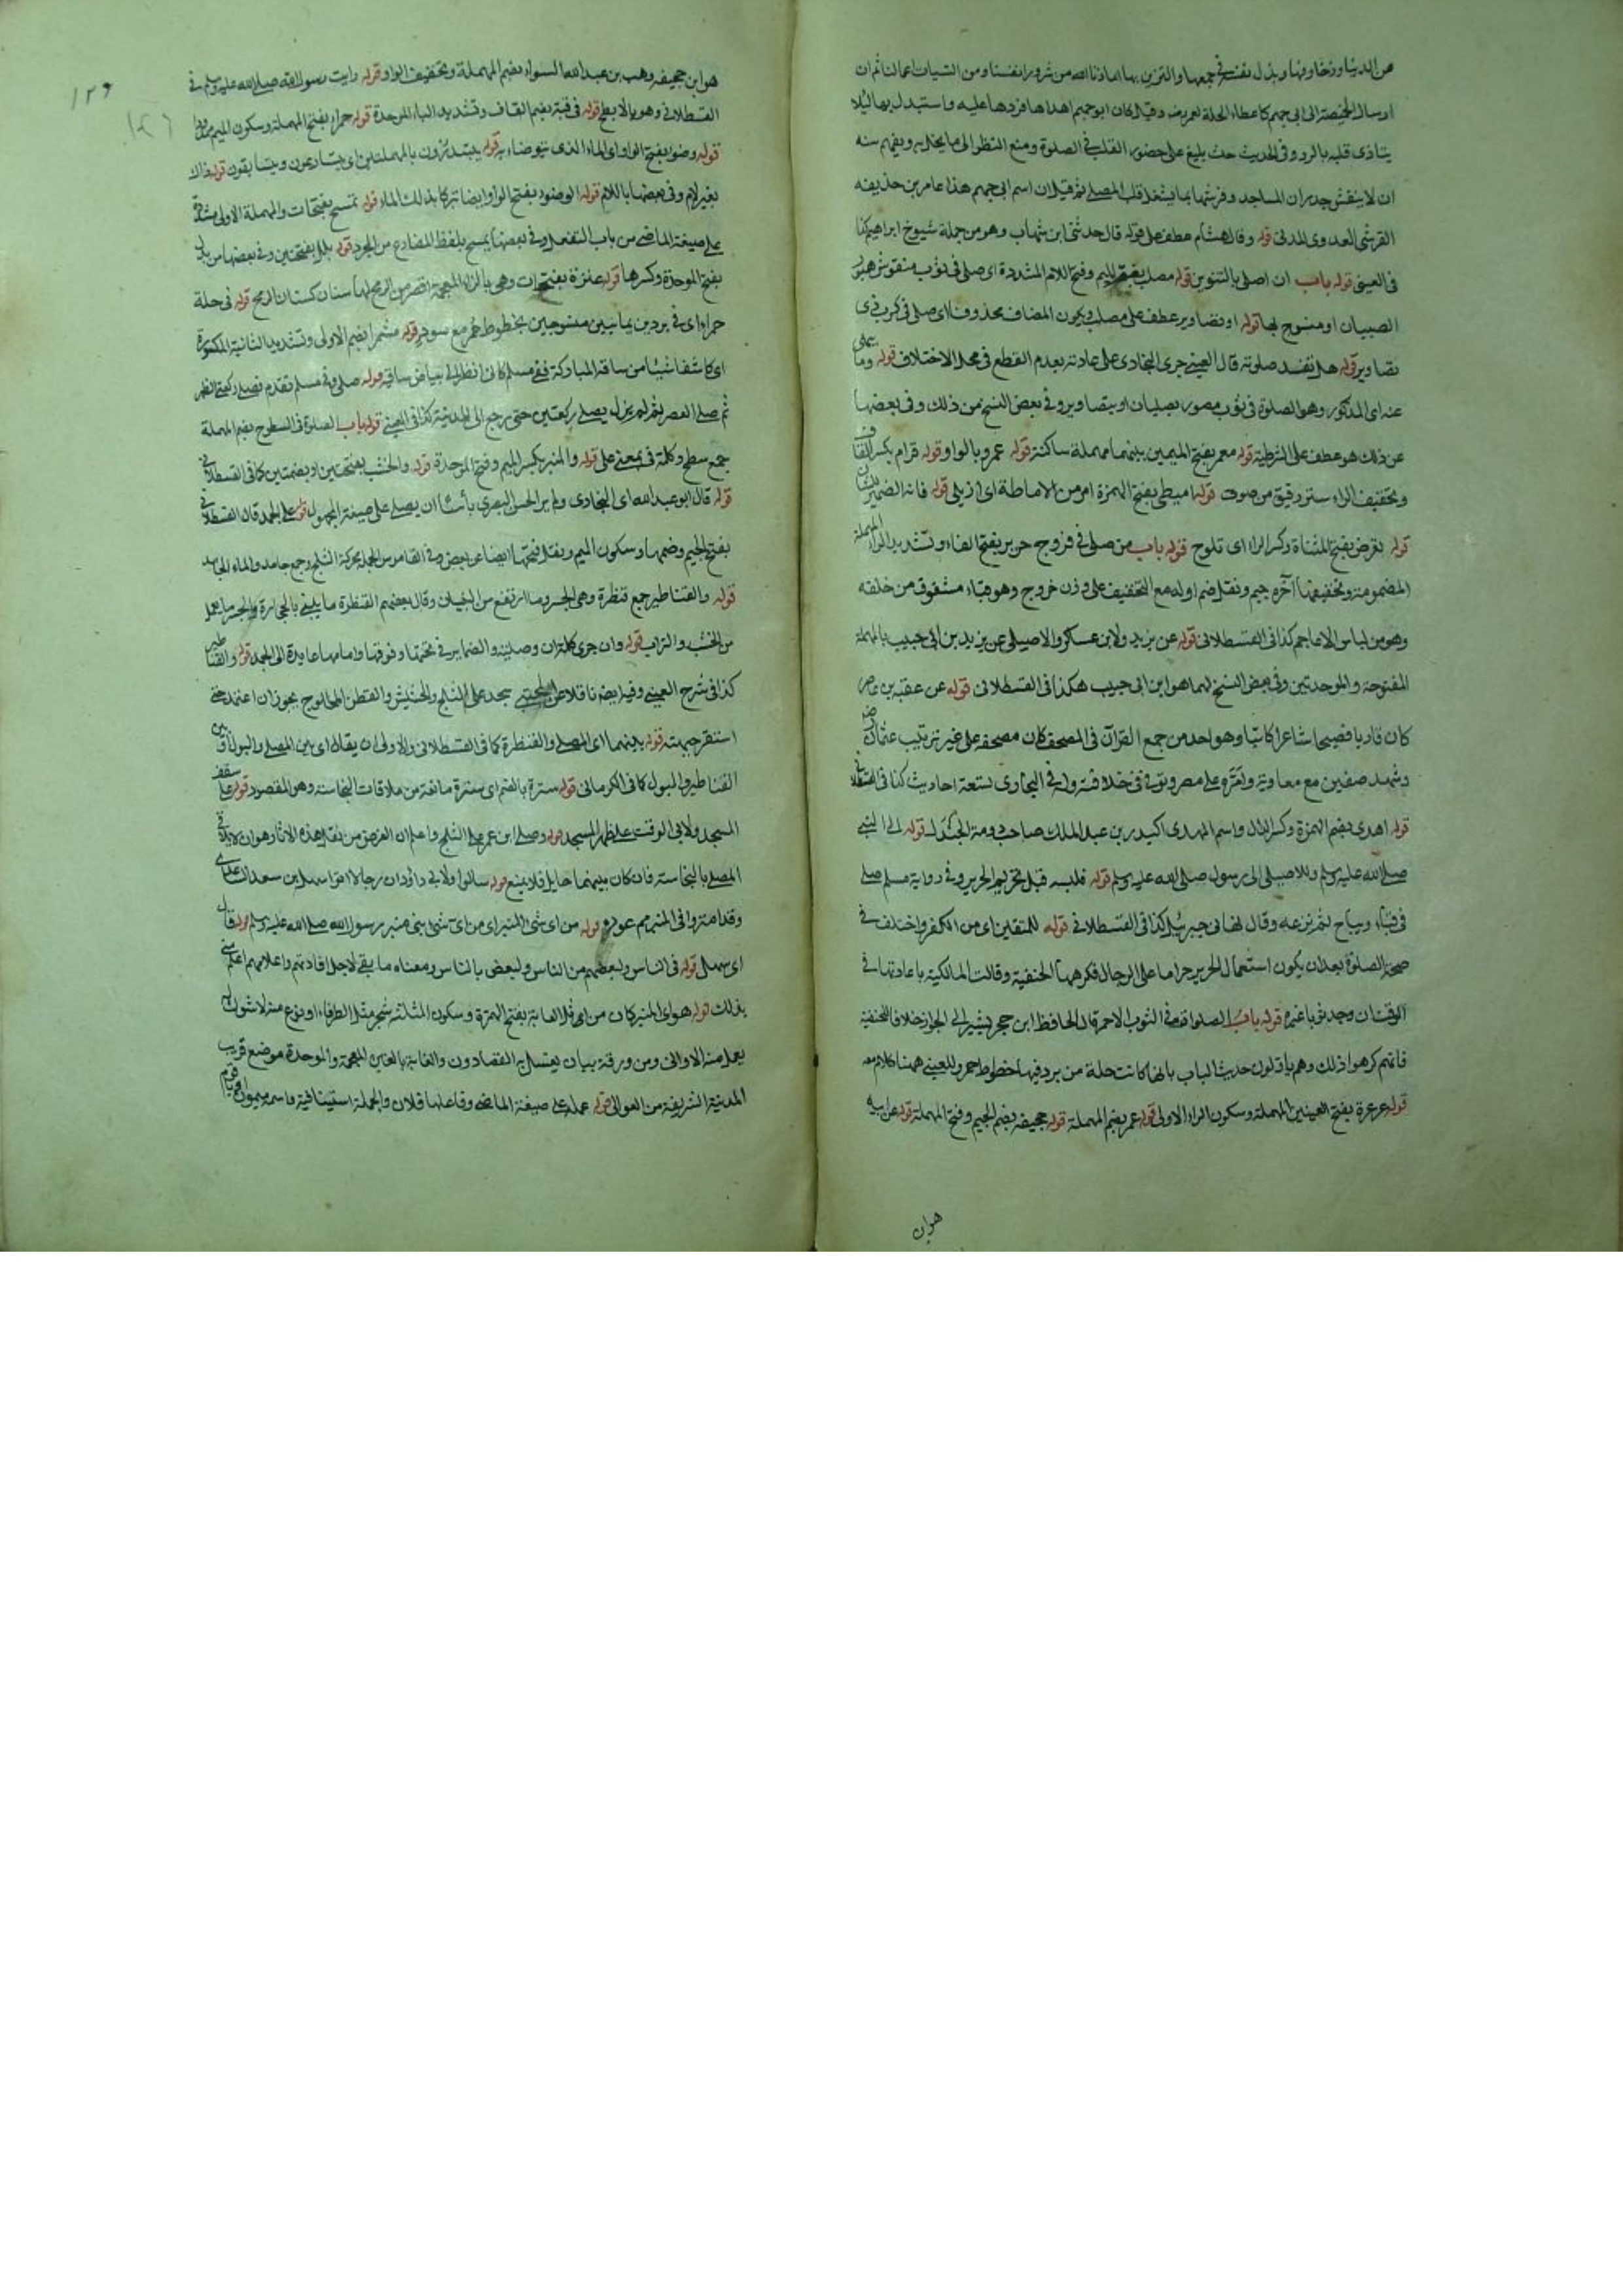 عن الدنيا وزخارفها وبذل نفسه في جمعها والتزين بها اعاذنا الله من شرور انفسنا ومن السيات اعمالنا ثم ان
ارسال الخميصة الى ابي جهم كاعطاء الحلة لعمر رض وقيل كان ابو جهم اهداها فردها عليه واستبدل بها لئلا
يتاذى قلبه بالرد وفي الحديث حث بليغ على حضور القلب في الصلوة ومنع النظر الى ما يخل به ويفهم منه
ان لا ينقش جدران المساجد وفرشها بما يشغل قلب المصلي ثم قيل ان اسم ابي جهم هذا عامر بن حذيفه
القرشي العدوي المدني قوله وقال هشام عطف على قوله قال حدثني ابن شهاب وهو من جملة شيوخ ابراهيم كذا
في العيني قوله باب ان صلى بالتنوين قوله مصلب بضم الميم وفتح اللام المشددة اي صلى في ثوب منقوش
الصبيان او منسوج بها قوله او تصاوير عطف على مصلب ويكون المضاف محذوفا اي صلى في ثوب ذي
تصاوير قوله هل تفسد صلوته قال العيني جرى البخاري على عادته بعدم القطع في محل الاختلاف قوله وما ينهى
عنه اي المذكور وهو الصلوة في ثوب مصور بصلبان او بتصاوير وفي بعض النسخ من ذلك وفي بعضها
عن ذلك هو عطف على الشرطية قوله معمر بفتح الميمين بينهما مهملة ساكنة قوله عمرو بالواو قوله قرام بكسر القاف
وتخفيف الراء ستر رقيق من صوف قوله اميطي بفتح الهمزة امر من الاماطة اي ازيلي قوله فانه الضمير للشان
قوله تعرض بفتح المثناة وكسر الراء اي تلوح قوله باب من صلى في فروج حرير بفتح الفاء وتشديد الراء المهملة
المضمومة وتخفيفها آخره جيم ونقل ضم اوله مع التخفيف على وزن خروج وهو قباء مشقوق من خلفه
وهو من لباس الاعاجم كذا في القسطلاني قوله عن يزيد ولابن عساكر والاصيلي عن يزيد بن ابي حبيب بالمهملة
المفتوحة والموحدتين وفي بعض النسخ لهما هو ابن ابي حبيب هكذا في القسطلاني قوله عن عقبه بن عامر
كان قاريا فصيحا شاعرا كاتبا وهو احد من جمع القرآن في المصحف كان مصحفه على غير ترتيب عثمان رض
وشهد صفين مع معاوية وامّره على مصر وتوفي في خلافته وله في البخاري تسعة احاديث كذا في القسطلاني
قوله اهدي بضم الهمزة وكسر الدال واسم المهدي اكيدر بن عبد الملك صاحب دومة الجندل قوله الى النبي
صلى الله عليه وسلم وللاصيلي الى رسول صلى الله عليه وسلم قوله فلبسه قبل تحريم الحرير وفي رواية مسلم صلى
في قباء ديباج ثم نزعه وقال نهاني جبريل كذا في القسطلاني قوله للمتقين اي من الكفر واختلف في
صحة الصلوة بعد ان يكون استعمال الحرير حراما على الرجال فكرهها الحنفية وقالت المالكية باعادتها في
الوقت ان وجد ثوبا غيره قوله باب الصلوة في الثوب الاحمر قال الحافظ ابن حجر يشير الى الجواز خلافا للحنفية
فانهم كرهوا ذلك وهم ياولون حديث الباب بانها كانت حلة من برد فيها خطوط احمر وللعيني ههنا كلام معه
قوله عرعرة بفتح العينين المهملة وسكون الراء الاولى قوله عمر بضم المهملة قوله جحيفه بضم الجيم وفتح المهملة قوله عن ابيه
هوابن
١٢٩
هو ابن جحيفه وهب بن عبد الله السواء بضم المهملة وتخفيف الواو قوله رايت رسول الله صلى الله عليه وسلم في
القسطلاني وهو بالابطح قوله في قبة بضم القاف وتشديد الباء الموحدة قوله حمراء بفتح المهملة وسكون الميم
قوله وضوء بفتح الواو اي الماء الذي يتوضاء به قوله يبتدرون بالمهملتين اي يتسارعون ويتسابقون قوله ذاك
بغير لام وفي بعضها باللام قوله الوضوء بفتح الواو ايضا تبركا بذلك الماء قوله تمسح بفتحات والمهملة الاولى مشددة
على صيغة الماضي من باب التفعل وفي بعضها يمسح بلفظ المضارع من المجرد قوله بلل بفتحتين وفي بعضها من بلال
بفتح الموحدة وكسرها قوله عنزة بفتحات وهي بالزاء المعجمة اقصر من الرمح لها سنان كسنان الرمح قوله في حلة
حمراء اي في بردين يمانيين منسوجين بخطوط حمر مع سود قوله مشمرا بضم الاولى وتشديد الثانية المكسورة
اي كاشفا شيئا من ساقه المباركة ففي مسلم كاني انظر الى بياض ساقيه قوله صلى وفي مسلم تقدم فصلى ركعتي الظهر
ثم صلى العصر ثم لم يزل يصلي ركعتين حتى رجع الى المدينة كذا في العيني قوله باب الصلوة في السطوح بضم المهملة
جمع سطح وكلمة في بمعنى على قوله والمنبر بكسر الميم وفتح الموحدة قوله والخشب بفتحتين او بضمتين كما في القسطلاني
قوله قال ابو عبد الله اي البخاري ولم ير الحسن البصري بأسا ان يصلى على صيغة المجهول قوله على الجمد قال القسطلاني
بفتح الجيم وضمها وسكون الميم ونقل فتحها ايضا عن بعض وفي القاموس الجمد محركة الثلج وجمع جامد والماء الجامد
قوله والقناطير جمع قنطرة وهي الجسر وما ارتفع من البنيان وقال بعضهم القنطرة ما يبنى بالحجارة والجسر ما يعمل
من الخشب والتراب قوله وان جرى كلمة ان وصلية والضماير في تحتها وفوقها وامامها عايدة الى الجمد قوله والقناطير
كذا في شرح العيني وفيه ايضا ناقلا عن يسجد على الثلج والحشيش والقطن المحلوج يجوز ان اعتمد حتى
استقر جبهته قوله بينهما اي المصلي والقنطرة كما في القسطلاني والاولى ان يقال اي بين المصلي والبول او بين
القناطير والبول كما في الكرماني قوله سترة بالضم اي سترة مانعة من ملاقات النجاسة وهو المقصود قوله على سقف
المسجد ولابي الوقت على ظهر المسجد قوله وصلى ابن عمر على الثلج واعلم ان الغرض من نقل هذه الاثار هو ان
المصلي بالنجاسة فان كان بينهما حايل فلا يمنع قوله سالوا ولابي داؤد ان رجالا اتوا سهل بن سعد الساعدي
وقد امتروا في المنبر مم عوده قوله من اي شئ المنبر اي من اي شئ بني منبر رسول الله صلى الله عليه وسلم قوله فقال
اي سهل قوله في الناس ولبعضهم من الناس ولبعض بالناس ومعناه ما بقي لاجل افادتهم واعلامهم اعلم مني
بذلك قوله هو اي المنبر كان من اثل الغابة بفتح الهمزة وسكون المثلثه شجر مثل الطرفاء او نوع منه لا شوك له
يعمل منه الاواني ومن ورقة يغسل به القصارون والغابة بالغين المعجمة والموحدة موضع قريب
المدينة الشريفة من العوالي قوله عمله على صيغة الماضي وفاعلها فلان والجملة استينافية واسمه ميمون